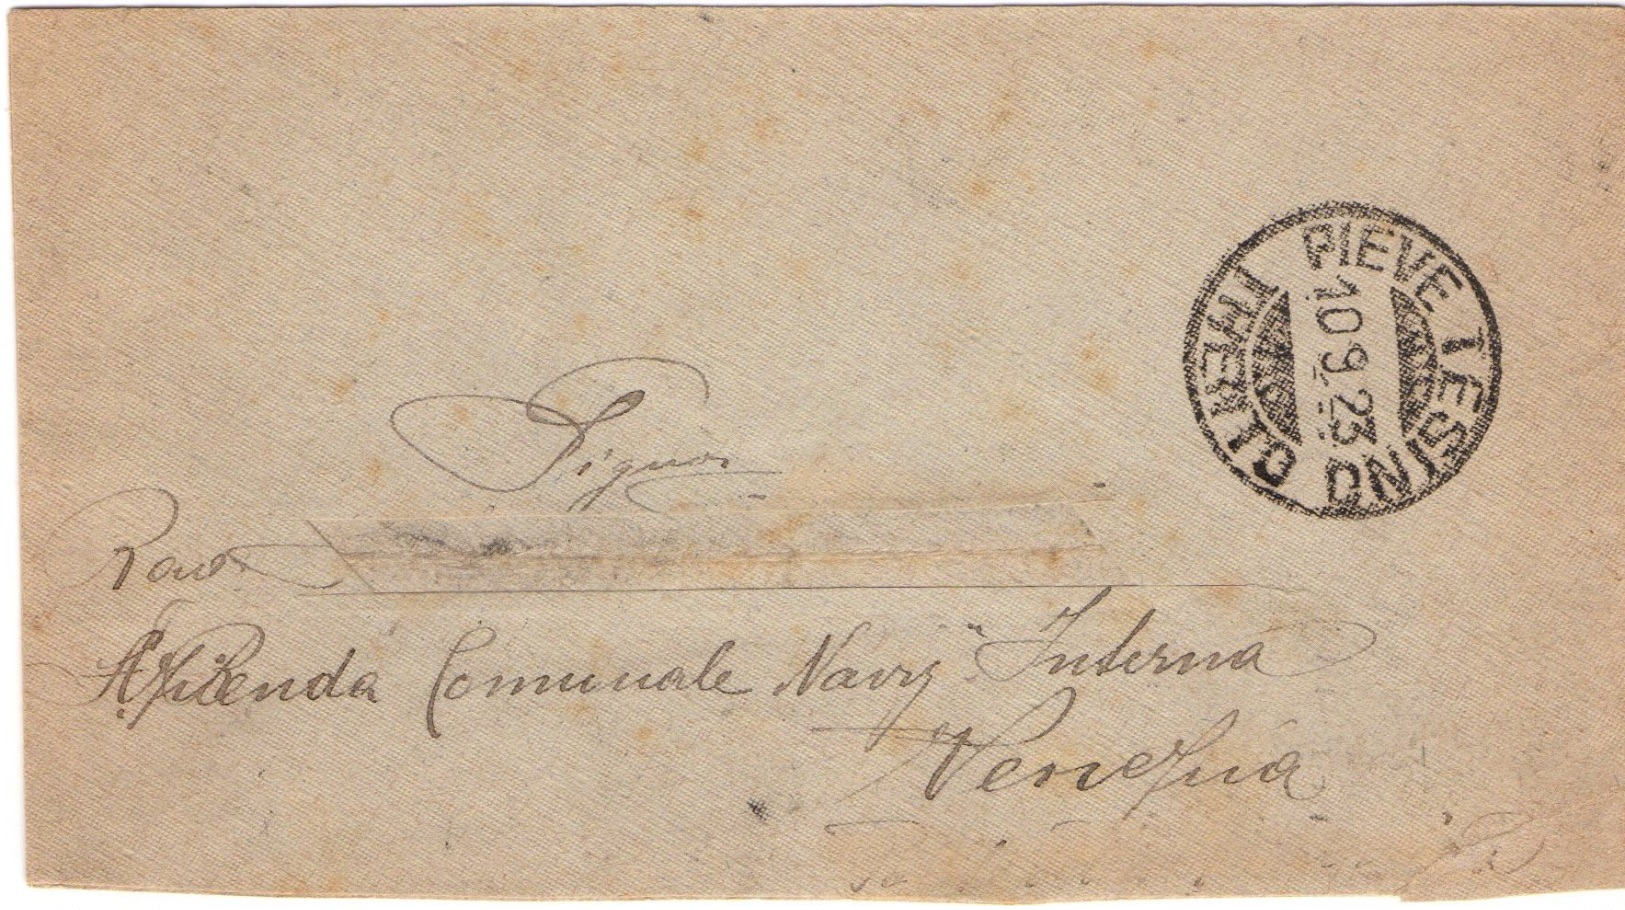 PIEVE TESINO
10 9 23
TRENTO
Signor
Azienda Comunale Navig Interna
Venezia